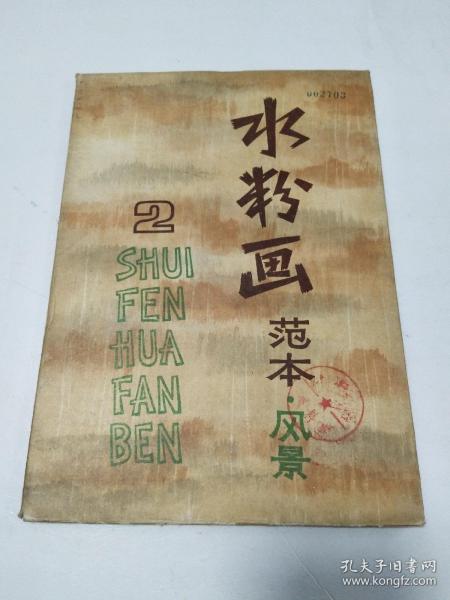 002703
水粉画
范本·风景
2
SHUI
FEN
HUA
FAN
BEN
孔夫子旧书网
www.kongfz.com